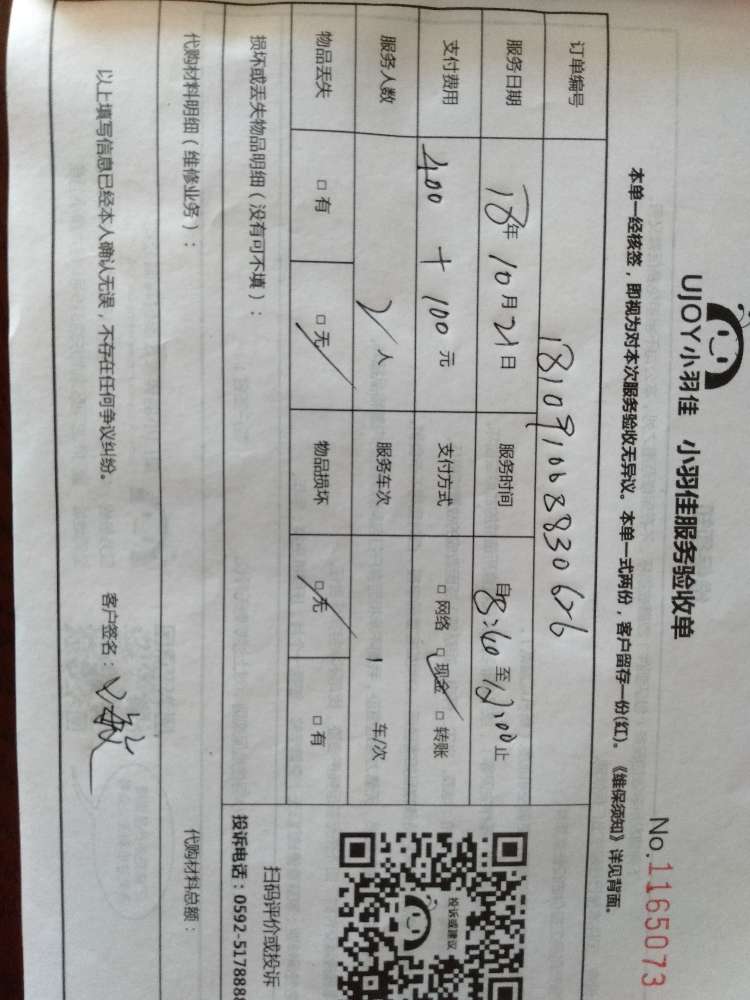 UJOY小羽佳 小羽佳服务验收单
No.1165073
本单一经核签，即视为对本次服务验收无异议。本单一式两份，客户留存一份(红)。《维保须知》详见背面。
订单编号
服务日期 18年10月21日 服务时间 自8:40至12:00止
支付费用 400+100元 支付方式 □网络 □现金 □转账
服务人数 2人 服务车次 1车/次
物品丢失 □有 □无 物品损坏 □无 □有
损坏或丢失物品明细（没有可不填）：
投诉或建议
扫码评价或投诉
投诉电话：0592-5178888
代购材料明细（维修业务）： 代购材料总额：
以上填写信息已经本人确认无误，不存在任何争议纠纷。 客户签名：